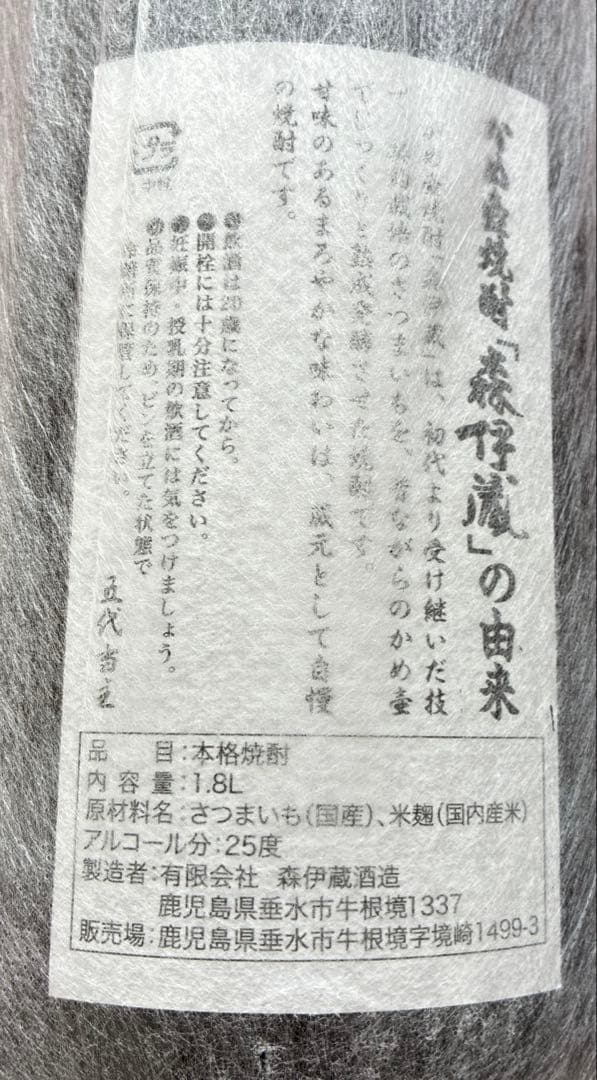 かめ壺焼酎「森伊蔵」の由来
かめ壺焼酎「森伊蔵」は、初代より受け継いだ技
で、契約栽培のさつまいもを、昔ながらのかめ壺
でじっくりと熟成発酵させた焼酎です。
甘味のあるまろやかな味わいは、蔵元として自慢
の焼酎です。
●飲酒は20歳になってから。
●開栓には十分注意してください。
●妊娠中・授乳期の飲酒には気をつけましょう。
●品質保持のため、ビンを立てた状態で
冷暗所に保管してください。
五代当主
プラ
品 目:本格焼酎
内容量:1.8L
原材料名:さつまいも(国産)、米麹(国内産米)
アルコール分:25度
製造者:有限会社 森伊蔵酒造
鹿児島県垂水市牛根境1337
販売場:鹿児島県垂水市牛根境字境崎1499-3